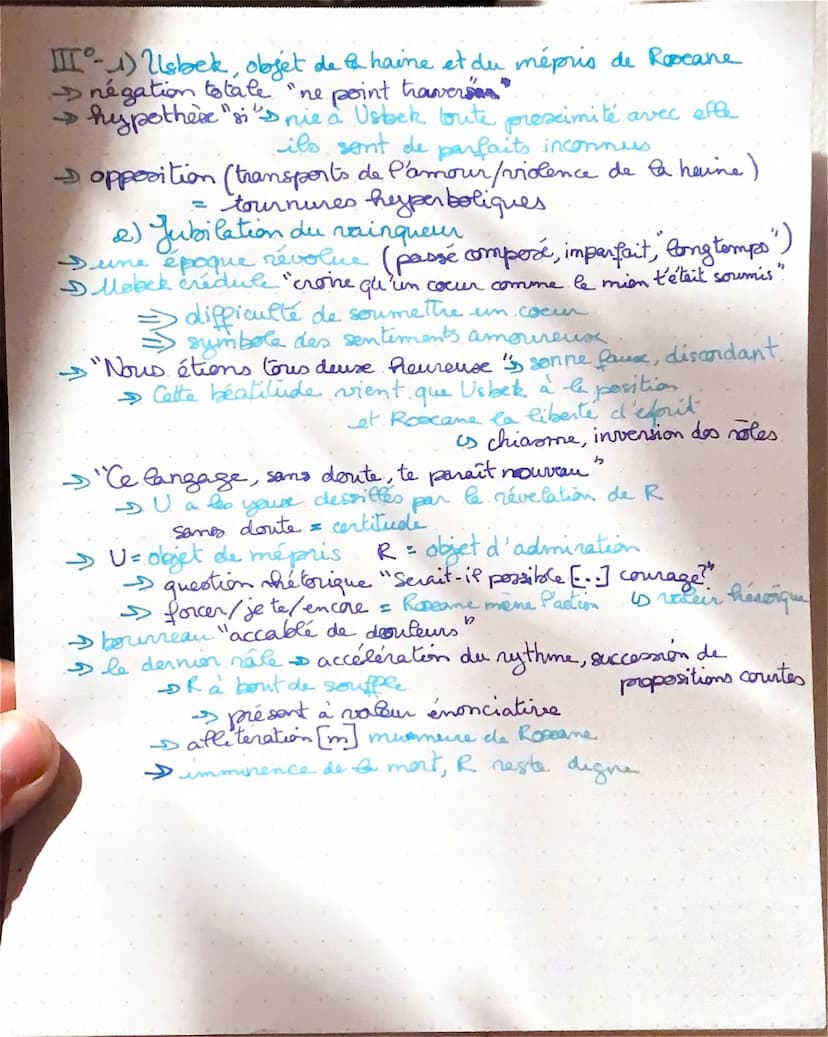 III°- 1) Usbek, objet de la haine et du mépris de Roxane
→ négation totale "ne point traver"
→ hypothèse "si" → nie à Usbek toute proximité avec elle
ils sont de parfaits inconnus
→ opposition (transports de l'amour/violence de la haine)
= tournures hyperboliques
2) Jubilation du vainqueur
→ une époque révolue (passé composé, imparfait, "longtemps")
→ Usbek crédule "croire qu'un coeur comme le mien t'était soumis"
⇒ difficulté de soumettre un coeur
⇒ symbole des sentiments amoureux
→ "Nous étions tous deux heureux" → sonne faux, discordant
→ Cette béatitude vient que Usbek à la position
et Roxane la liberté d'esprit
↳ chiasme, inversion des rôles
→ "Ce langage, sans doute, te paraît nouveau"
→ U a les yeux dessillés par la révélation de R
sans doute = certitude
→ U = objet de mépris R = objet d'admiration
→ question rhétorique "Serait-il possible [...] courage?"
→ forcer/je te/encore = Roxane mène l'action ↳ valeur héroïque
→ bourreau "accablé de douleurs"
→ le dernier râle → accélération du rythme, succession de
propositions courtes
→ R à bout de souffle
→ présent à valeur énonciative
→ allitération [m] murmure de Roxane
→ imminence de la mort, R reste digne